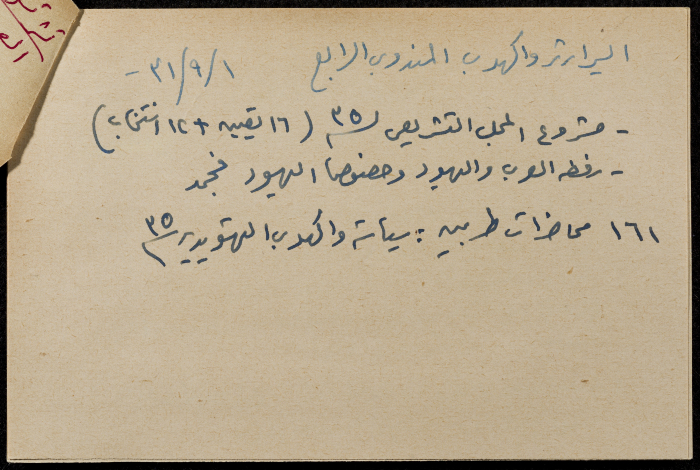 السير ارثر واكهوب المندوب الرابع ٣١/٩/١ -
- مشروع المجلس التشريعي ٣٥ (١٦ تعيين + ١٢ انتخاب)
- رفضه العرب واليهود وخصوصا اليهود فجمد
١٦١ محاضرات طربين : سياسة واكهوب التهويدية ٣٥